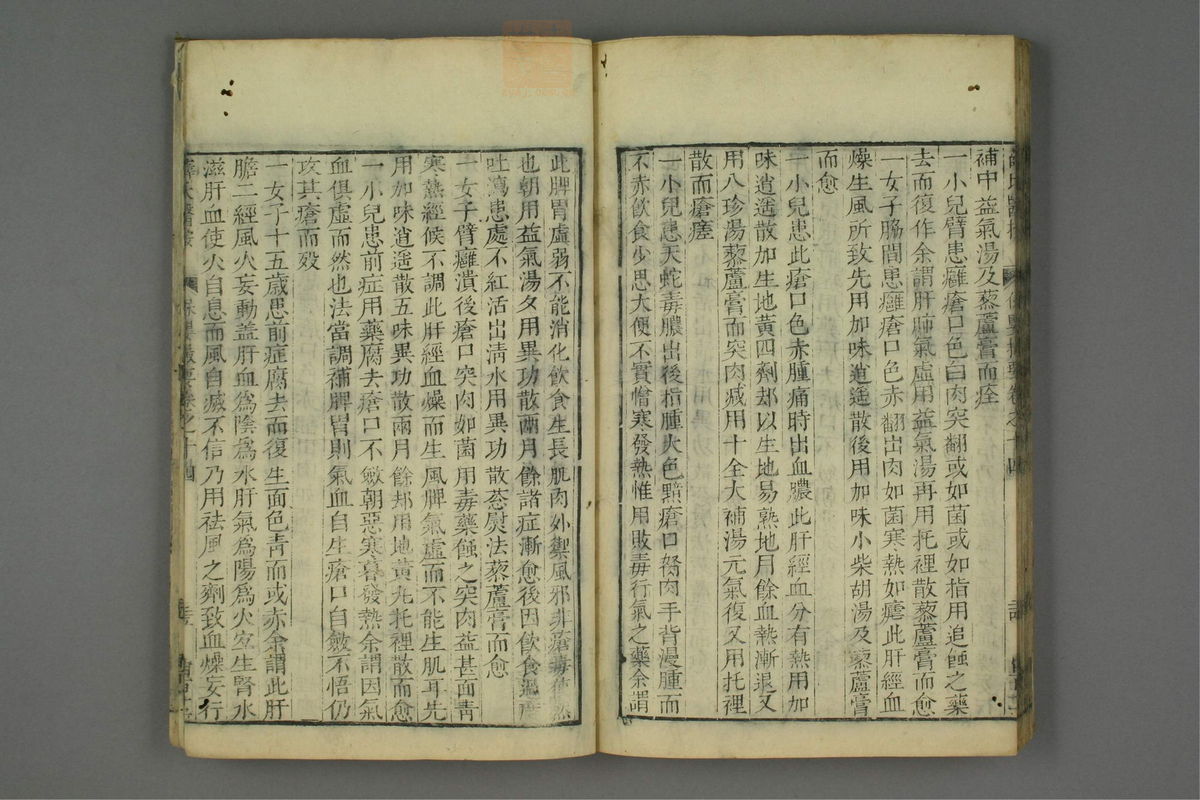 補中益氣湯及藜蘆膏而痊
一小兒臂患癰瘡口色白肉突翻或如菌或如指用追蝕之藥
去而復作余謂肝肺氣虛用益氣湯再用托裡散藜蘆膏而愈
一女子脇間患癰瘡口色赤翻出肉如菌寒熱如瘧此肝經血
燥生風所致先用加味逍遥散後用加味小柴胡湯及藜蘆膏
而愈
一小兒患此瘡口色赤腫痛時出血膿此肝經血分有熱用加
味逍遥散加生地黄四劑却以生地易熟地月餘血熱漸退又
用八珍湯藜蘆膏而突肉减用十全大補湯元氣復又用托裡
散而瘡瘥
一小兒患天蛇毒膿出後指腫大色黯瘡口努肉手背漫腫而
不赤飲食少思大便不實憎寒發熱惟用敗毒行氣之藥余謂
此脾胃虛弱不能消化飲食生長肌肉外禦風邪非瘡毒使然
也朝用益氣湯夕用異功散兩月餘諸症漸愈後因飲食過度
吐瀉患處不紅活出淸水用異功散葱熨法藜蘆膏而愈
一女子臂癰潰後瘡口突肉如菌用毒藥蝕之突肉益甚面靑
寒熱經候不調此肝經血燥而生風脾氣虛而不能生肌耳先
用加味逍遥散五味異功散兩月餘却用地黄丸托裡散而愈
一小兒患前症用藥腐去瘡口不斂朝惡寒暮發熱余謂因氣
血俱虛而然也法當調補脾胃則氣血自生瘡口自斂不悟仍
攻其瘡而歿
一女子十五歲患前症腐去而復生面色靑而或赤余謂此肝
膽二經風火妄動盖肝血爲陰爲水肝氣爲陽爲火宜生腎水
滋肝血使火自息而風自滅不信乃用祛風之劑致血燥妄行